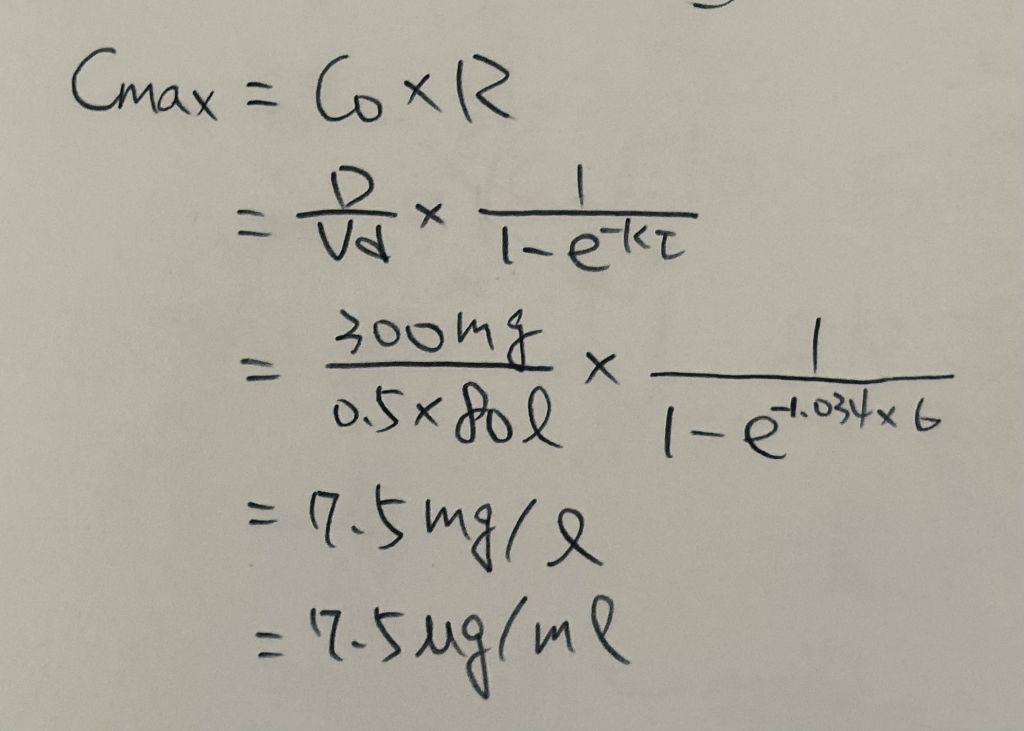 Cmax = C₀ × R
= D/Vd × 1/(1-e^-kτ)
= 300mg/(0.5×80l) × 1/(1-e^-1.034×6)
= 7.5mg/l
= 7.5μg/ml